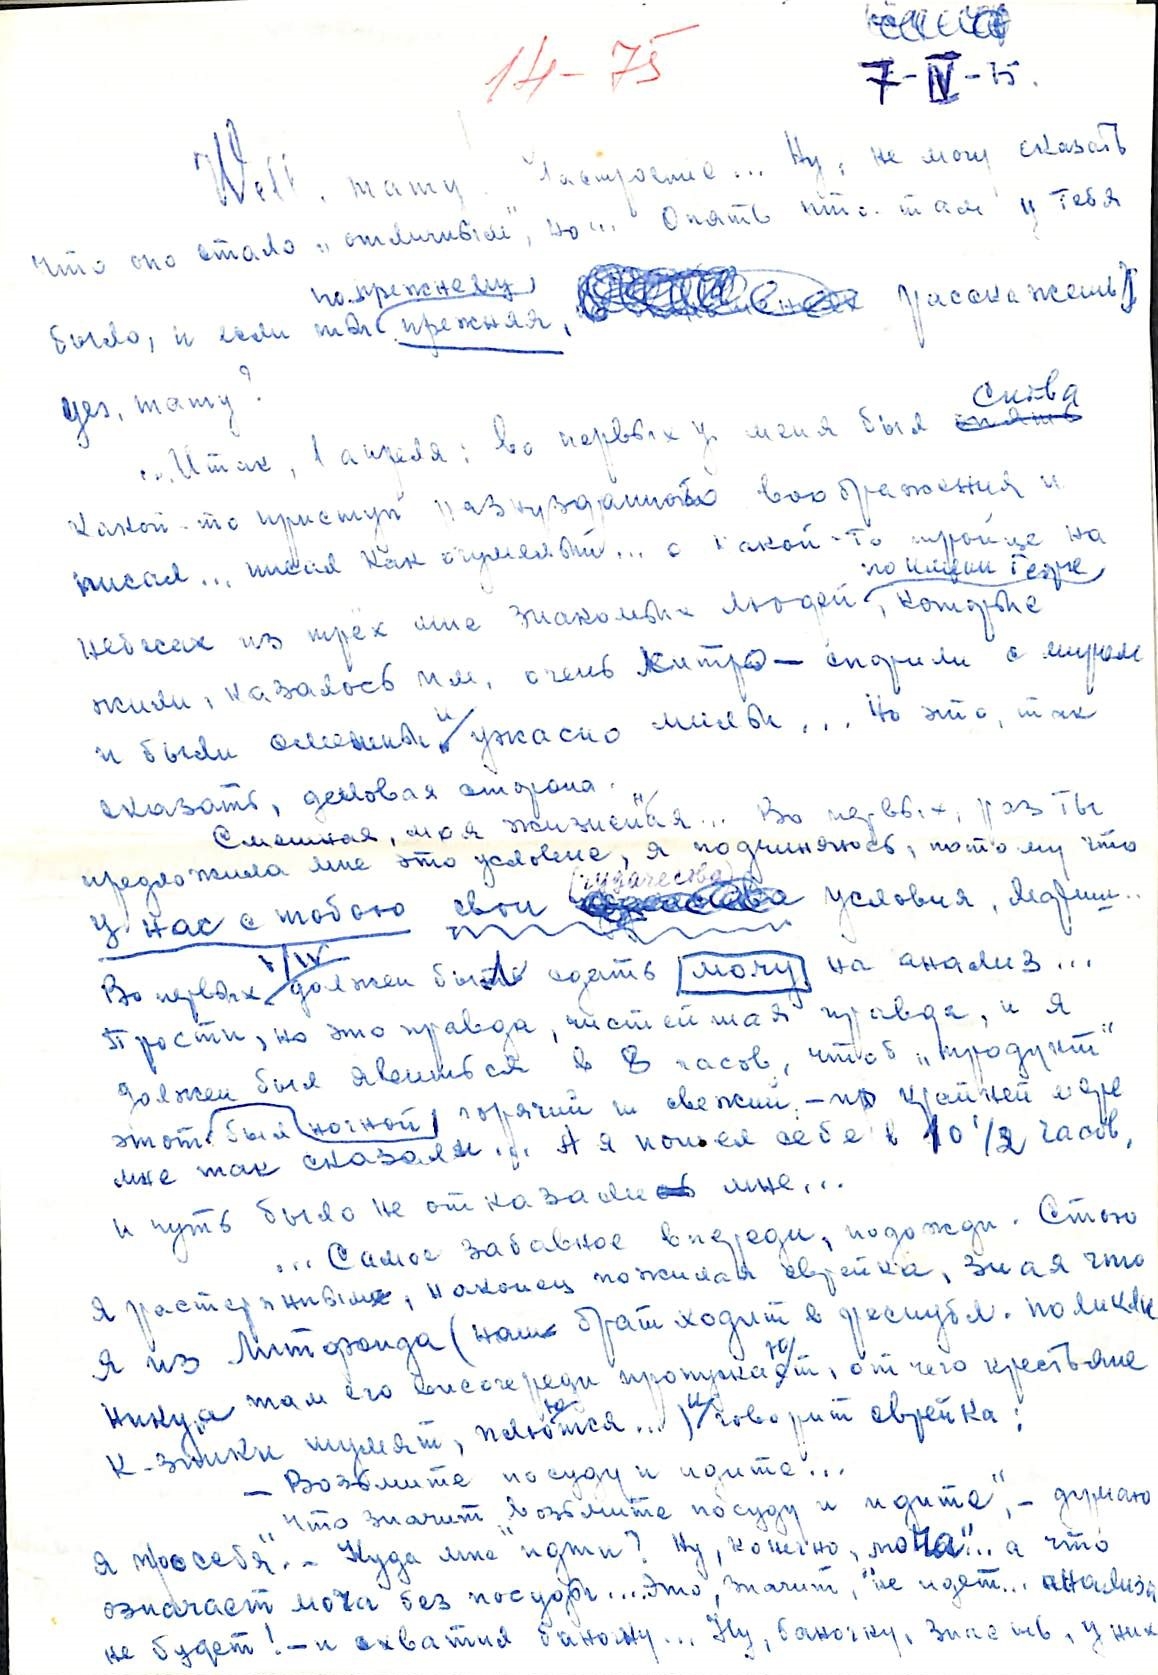 14-75
7-IV-75.
Well, mamy! Настроение... Ну, не могу сказать
что оно стало „отличным", но... Опять что-там у тебя
по прежнему
было, и если ты прежняя, расскажешь
yes, mamy?
снова
...Итак, 1 апреля: во первых у меня был опять
какой-то приступ разнузданного воображения и
писал... писал как очумелый... о какой-то тройце на
по имени Гезре
небесах из трёх мне знакомых людей, которые
жили, казалось им, очень хитро — спорили с миром
и были смешны и ужасно милы... Но это, так
сказать, деловая сторона.
Смешная, моя жизненная... Во первых, раз ты
предложила мне это условие, я подчиняюсь, потому что
(чудачества)
у нас с тобою свои условия, Мариш..
1/IV
Во первых должен был сдать мочу на анализ...
Прости, но это правда, чистейшая правда, и я
должен был явиться в 8 часов, чтоб „продукт"
этот был ночной, горячий и свежий, — по крайней мере
мне так сказали... А я пошел себе в 10 1/2 часов,
и чуть было не отказали мне...
...Самое забавное впереди, подожди. Стою
я растерянный, наконец пожилая еврейка, зная что
я из Литфонда (наш брат ходит в республ. поликли-
нику, а там его вне очереди пропускают, от чего крестьяне
к-зники шумят, плюются...) и говорит еврейка:
— Возьмите посуду и идите...
„Что значит „возьмите посуду и идите", — думаю
я про себя. — Куда мне „идти"? Ну, конечно, моча"... а что
означает моча без посуды... Это, значит, не идет... анализа
не будет! — и схватил банку... Ну, баночку, знаешь, у них